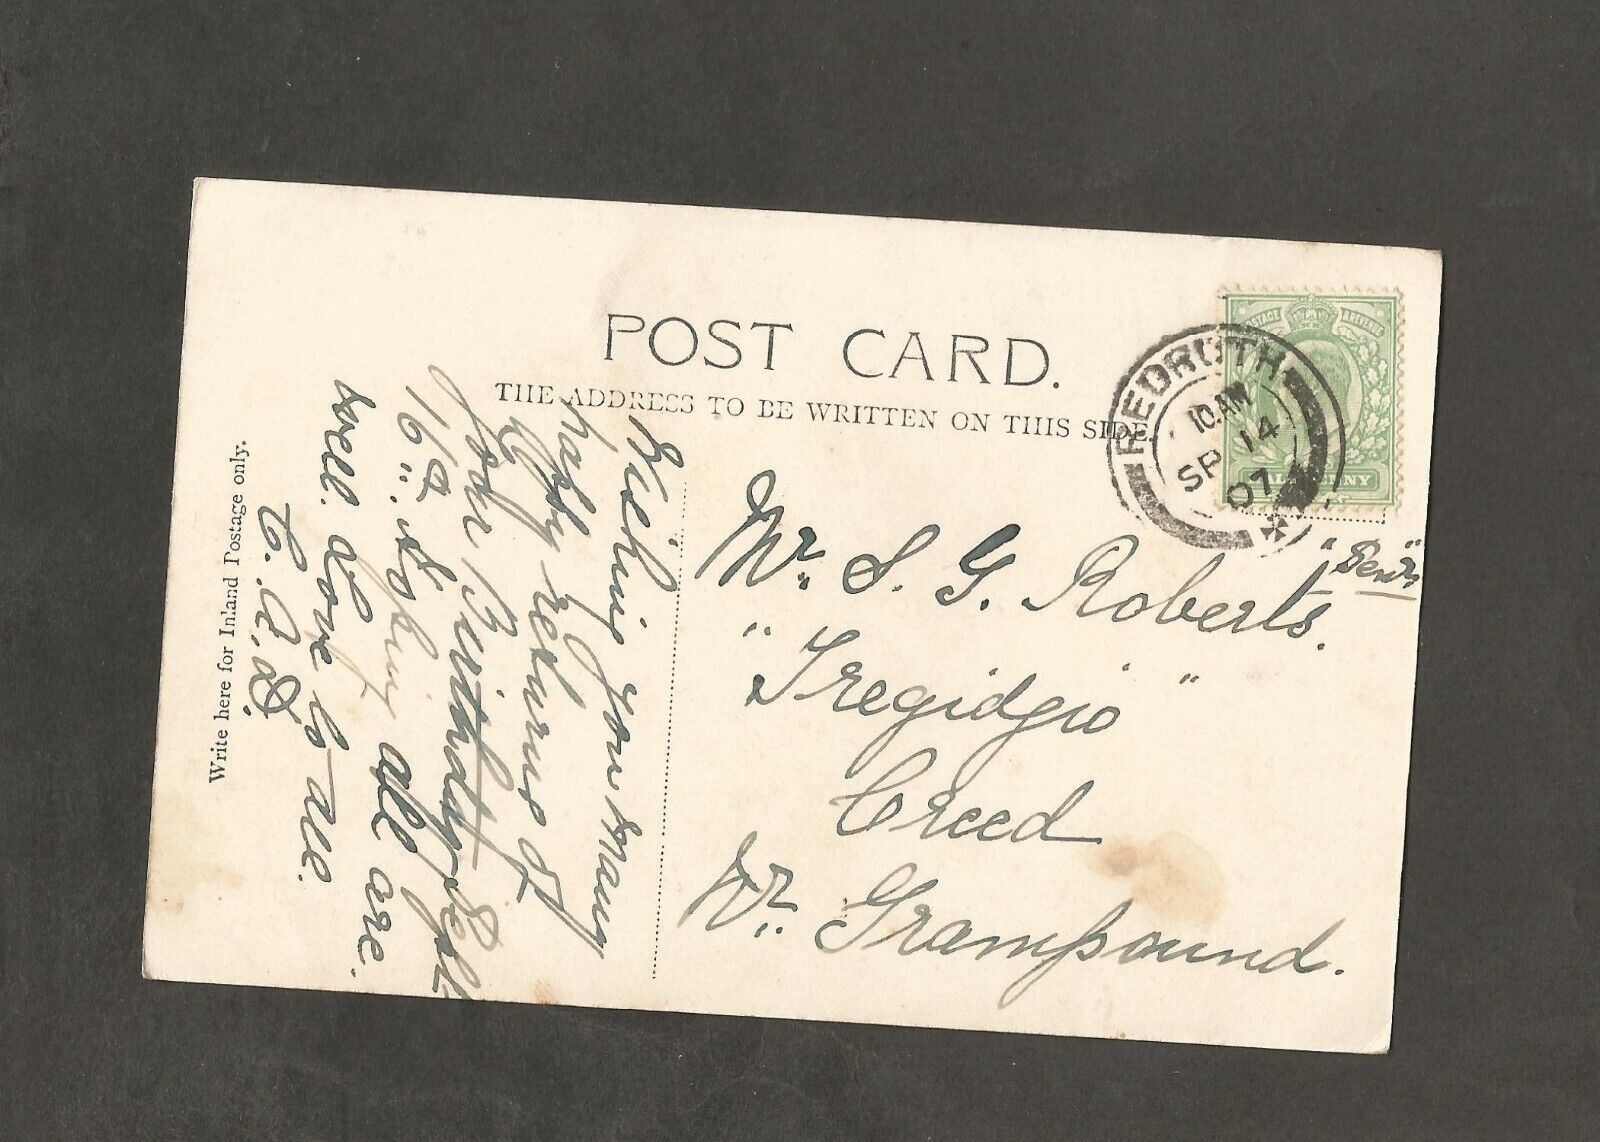 POST CARD.
THE ADDRESS TO BE WRITTEN ON THIS SIDE.
Write here for Inland Postage only.
Wishing you Many
happy returns of
your Birthday Sept
16th. Hoping all are
well. Love to all.
REDRUTH
10.AM
SP 14
07
POSTAGE & REVENUE
HALFPENNY
Mr. S. G. Roberts. "Senr"
"Tregidgio"
Creed
Nr. Grampound.